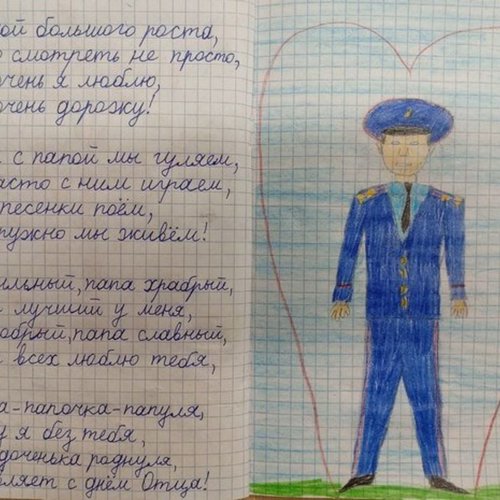 ой большого роста,
смотреть не просто,
очень я люблю,
очень дорожу!
с папой мы гуляем,
асто с ним играем,
песенки поём,
ружно мы живём!
ильный, папа храбрый,
лучший у меня,
обрый, папа славный,
всех люблю тебя,
а-папочка-папуля,
у я без тебя,
доченька роднуля,
вляет с днём Отца!